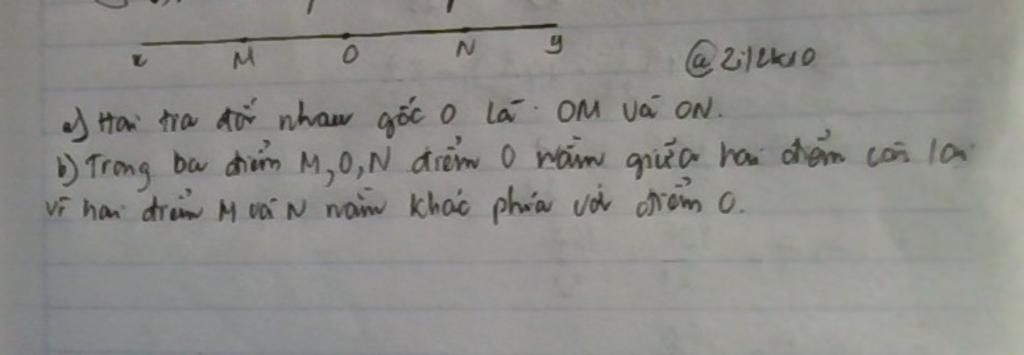 x M O N y
@Zi12k10
a) Hai tia đối nhau gốc O là: OM và ON.
b) Trong ba điểm M, O, N điểm O nằm giữa hai điểm còn lại
vì hai điểm M và N nằm khác phía với điểm O.